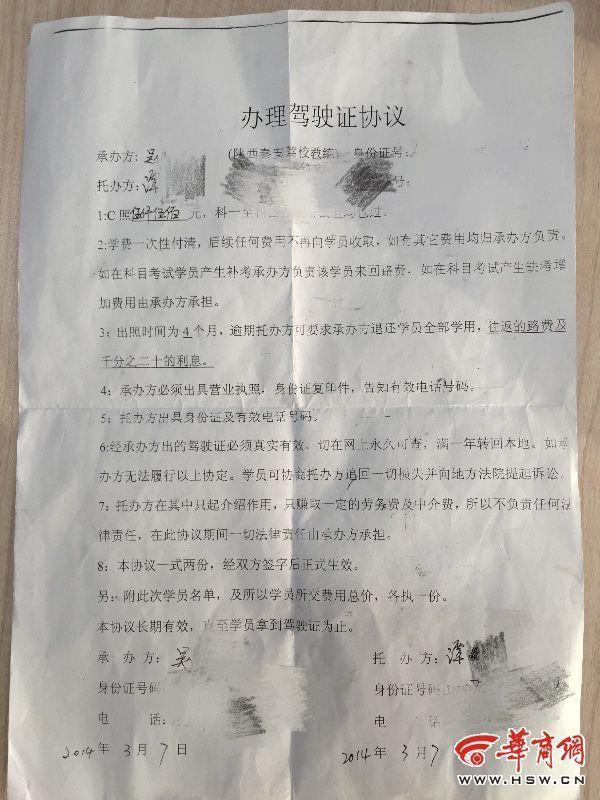 办理驾驶证协议
承办方：吴 (陕西秦安驾校教练) 身份证号：
托办方：潭 号：
1:C照伍仟伍佰元，科一全 过。
2:学费一次性付清，后续任何费用不再向学员收取，如有其它费用均归承办方负责。
如在科目考试学员产生补考承办方负责该学员来回路费，如在科目考试产生缺考增
加费用由承办方承担。
3：出照时间为4个月，逾期托办方可要求承办方退还学员全部学用，往返的路费及
千分之二十的利息。
4：承办方必须出具营业执照，身份证复印件，告知有效电话号码。
5：托办方出具身份证及有效电话号码。
6:经承办方出的驾驶证必须真实有效，切在网上永久可查，满一年转回本地。如承
办方无法履行以上协定。学员可协商托办方追回一切损失并向地方法院提起诉讼。
7；托办方在其中只起介绍作用，只赚取一定的劳务费及中介费，所以不负责任何法
律责任，在此协议期间一切法律责任由承办方承担。
8：本协议一式两份，经双方签字后正式生效。
另：附此次学员名单，及所以学员所交费用总价，各执一份。
本协议长期有效，直至学员拿到驾驶证为止。
承 办 方：吴 托 办 方：潭
身份证号码： 身份证号码：
电 话： 电 话：
2014年 3月 7日 2014年 3月7
华商网
WWW.HSW.CN